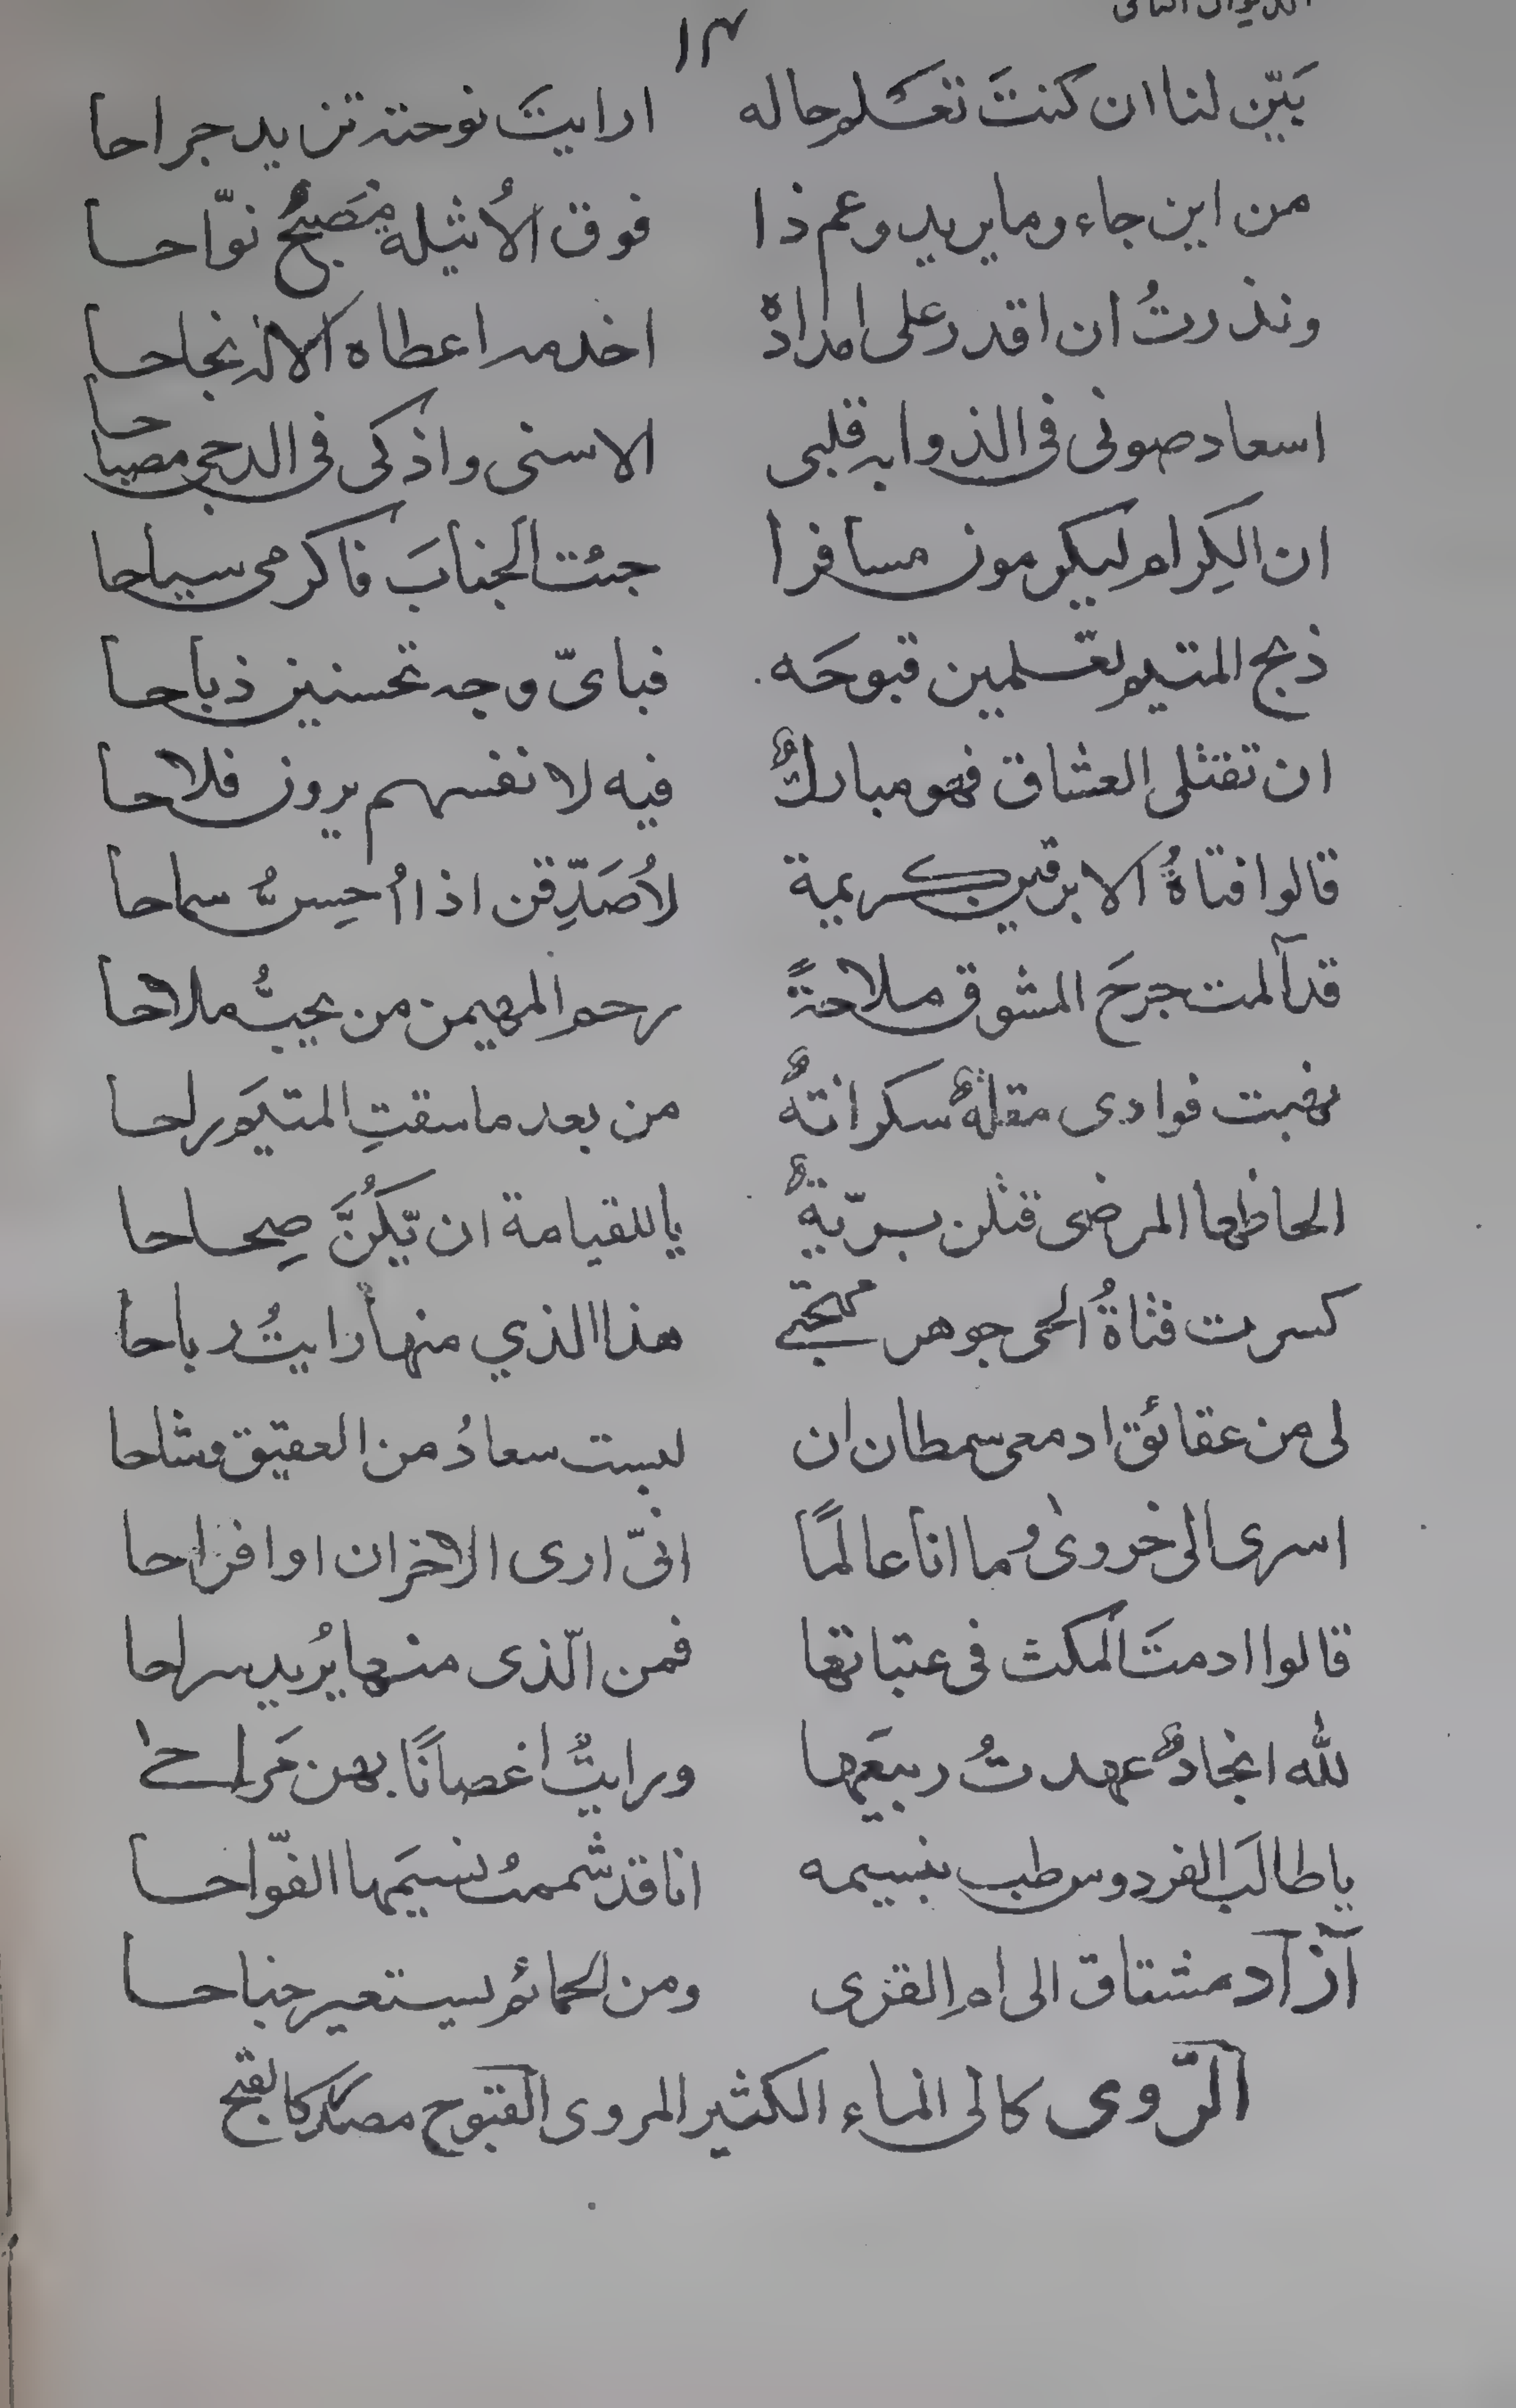 الديوان الثانى
١٣
بَيّن لنا ان كنتَ تعلم حاله ارايتَ نوحته تزيد جراحا
من اين جاء وما يريد وعم ذا فوق الأثيلة مُصَبِحُ نوّاحا
ونذرتُ ان اقدر على امداده اخدمه اعطاه الاله نجاحا
اسعاد صونى فى الذوابه قلبى الاسنى واذكى فى الدجى مصباحا
ان الكِرام ليكرمون مسافرا جئت الجنابَ فاكرمى سياحا
ذبح المتيم تعلمين قبوحَه فباىّ وجه تحسنين ذباحا
ان تقتلى العشاق فهو مباركٌ فيه لانفسهم يرون فلاحا
قالوا فتاةُ الابرقين كريمة لأُصَدِّقن اذا أُحِسُّ سماحا
قد آلمت جرحَ المشوق ملاحةً رحم المهيمن من يحبُّ ملاحا
نهبت فوادى مقلةٌ سكرانةٌ من بعد ما سقتِ المتيَّم راحا
الحاظها المرضى قتلن بريّةً ياللقيامة ان يّكُنَّ صِحاحا
كسرت فتاةُ الحى جوهر مهجتى هذا الذي منها رايتُ رباحا
لى من عقائق ادمعى سمطان ان لبست سعادُ من العقيق وشاحا
اسرى الى خروى وما انا عالمًا انىّ ارى الاحزان او افراحا
قالوا ادمتَ المكث فى عتباتها فمن الّذى منها يُريد سراحا
لله انجادٌ عهدتُ ربيعَها ورايتُ اغصانًا بهن مَراحا
يا طالبَ الفردوس طب بنسيمه انا قد شممتُ نسيمَها الفوّاحا
آزاد مشتاق الى ام القرى ومن الحمائم يستعير جناحا
الرّوى كالى الماء الكثير المروى القبوح مصدر كالقبح